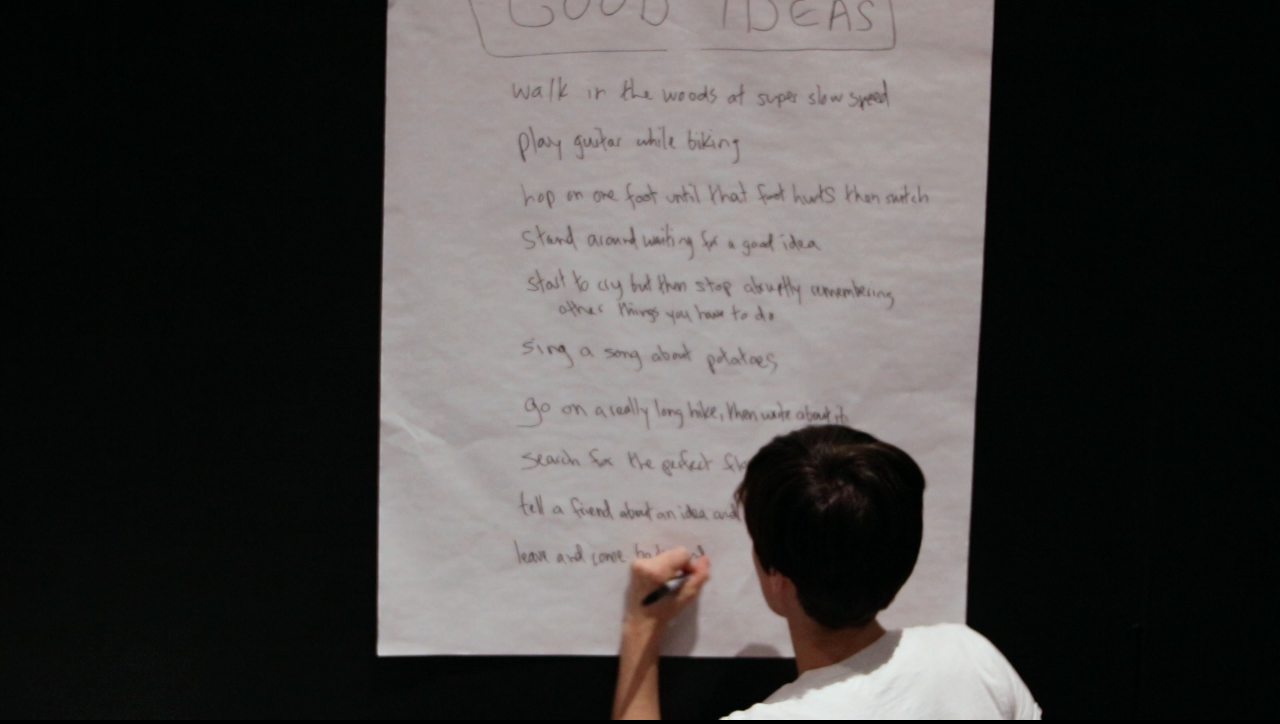 GOOD IDEAS
walk in the woods at super slow speed
play guitar while biking
hop on one foot until that foot hurts then switch
stand around waiting for a good idea
start to cry but then stop abruptly remembering
other things you have to do
sing a song about potatoes
go on a really long hike, then write about it
search for the perfect
tell a friend about an idea and
leave and come